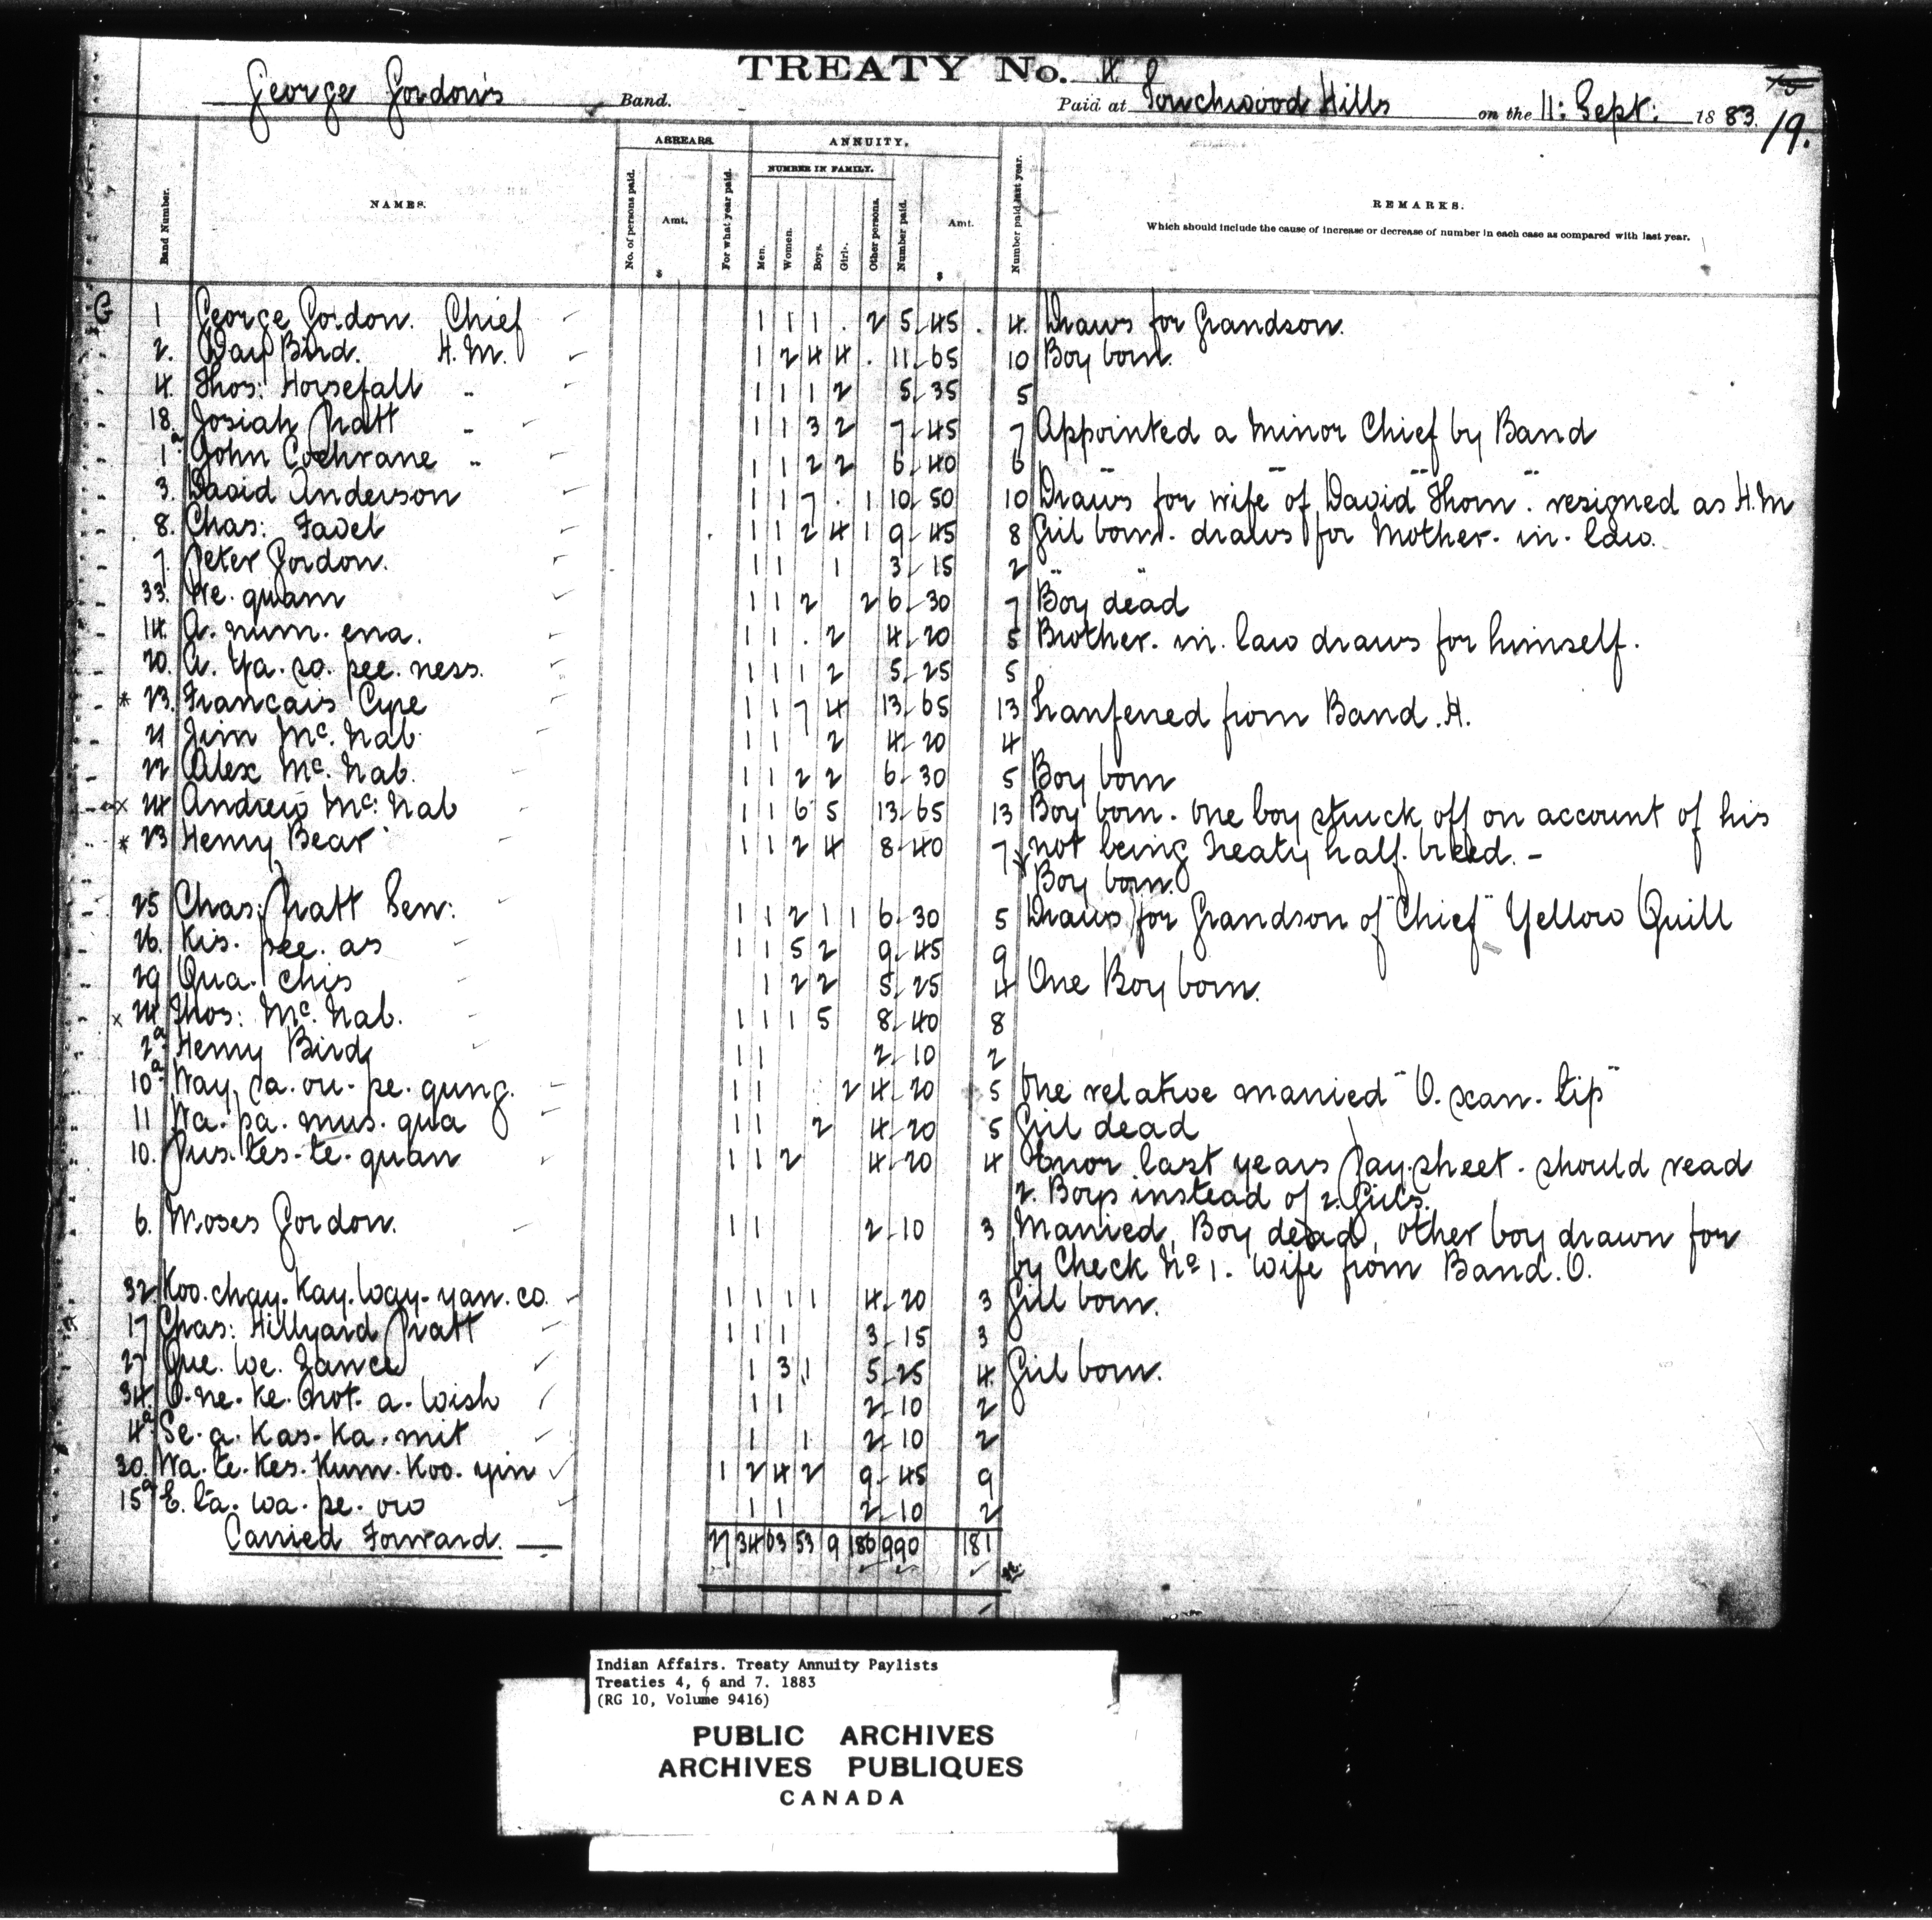 TREATY No. 4
George Gordon's Band. Paid at Touchwood Hills on the 11: Sept: 1883.
19.
ARREARS. ANNUITY.
NUMBER IN FAMILY.
Band Number. NAMES. No. of persons paid. Amt. $ For what year paid. Men. Women. Boys. Girls. Other persons. Number paid. Amt. $ Number paid last year. REMARKS.
Which should include the cause of increase or decrease of number in each case as compared with last year.
G 1 George Gordon. Chief 1 1 1 . 2 5 45 4 Draws for Grandson.
2. Day Bird. H.M. 1 2 4 4 . 11 65 10 Boy born.
4. Thos: Horsefall " 1 1 1 2 5 35 5
18. Josiah Pratt " 1 1 3 2 7 45 7 Appointed a Minor Chief by Band
1a John Cochrane " 1 1 2 2 6 40 6
3. David Anderson 1 1 7 . 1 10 50 10 Draws for wife of "David Thom". resigned as H.M
8. Chas: Favel 1 1 2 4 1 9 45 8 Girl born. draws for Mother-in-law.
7. Peter Gordon. 1 1 1 3 15 2 " "
33. We. quam 1 1 2 2 6 30 7 Boy dead
14. A. num. ena. 1 1 . 2 4 20 5 Brother. in. law draws for himself.
20. A. ya. so. pee. ness. 1 1 1 2 5 25 5
* 23. Francais Cype 1 1 7 4 13 65 13 Tranfered from Band. H.
21 Jim Mc. Nab. 1 1 2 4 20 4
22 Alex Mc. Nab. 1 1 2 2 6 30 5 Boy born
x 24 Andrew Mc. Nab 1 1 6 5 13 65 13 Boy born. One boy struck off on account of his
* 23 Henry Bear 1 1 2 4 8 40 7 not being Treaty half. breed. -
Boy born.
25 Chas: Pratt Sen: 1 1 2 1 1 6 30 5 Draws for Grandson of "Chief" Yellow Quill
26. Kis. pee. as 1 1 5 2 9 45 9
29 Qua. chis 1 2 2 5 25 4 One Boy born.
x 24 Thos: Mc. Nab. 1 1 1 5 8 40 8
2a Henry Bird 1 1 2 10 2
10a Way, sa. ou. pe. gung. 1 1 2 4 20 5 One relative married "O. xan. tip"
11 Wa. pa. mus. qua 1 1 2 4 20 5 Girl dead
10. Pus. tes. te. quan 1 1 2 4 20 4 Error last years Pay. sheet. should read
2. Boys instead of 2. Girls.
6. Moses Gordon. 1 1 2 10 3 Married, Boy dead, other boy drawn for
by Check No 1. Wife from Band. O.
32. Koo. chay. Kay. way. yan. co. 1 1 1 1 4 20 3 Girl born.
17 Chas: Hillyard Pratt 1 1 1 3 15 3
27 Que. we. zance 1 3 1 5 25 4 Girl born.
34. O. ne. Ke. not. a. wish 1 1 2 10 2
4a Se. a. Kas. Ka. mit 1 1 2 10 2
30. Wa. te. Kes. Kum. Koo. yin 1 2 4 2 9 45 9
15a E. ta. wa. pe. ow 1 1 2 10 2
Carried Forward. 27 34 63 53 9 186 990 181
Indian Affairs. Treaty Annuity Paylists
Treaties 4, 6 and 7. 1883
(RG 10, Volume 9416)
PUBLIC ARCHIVES
ARCHIVES PUBLIQUES
CANADA